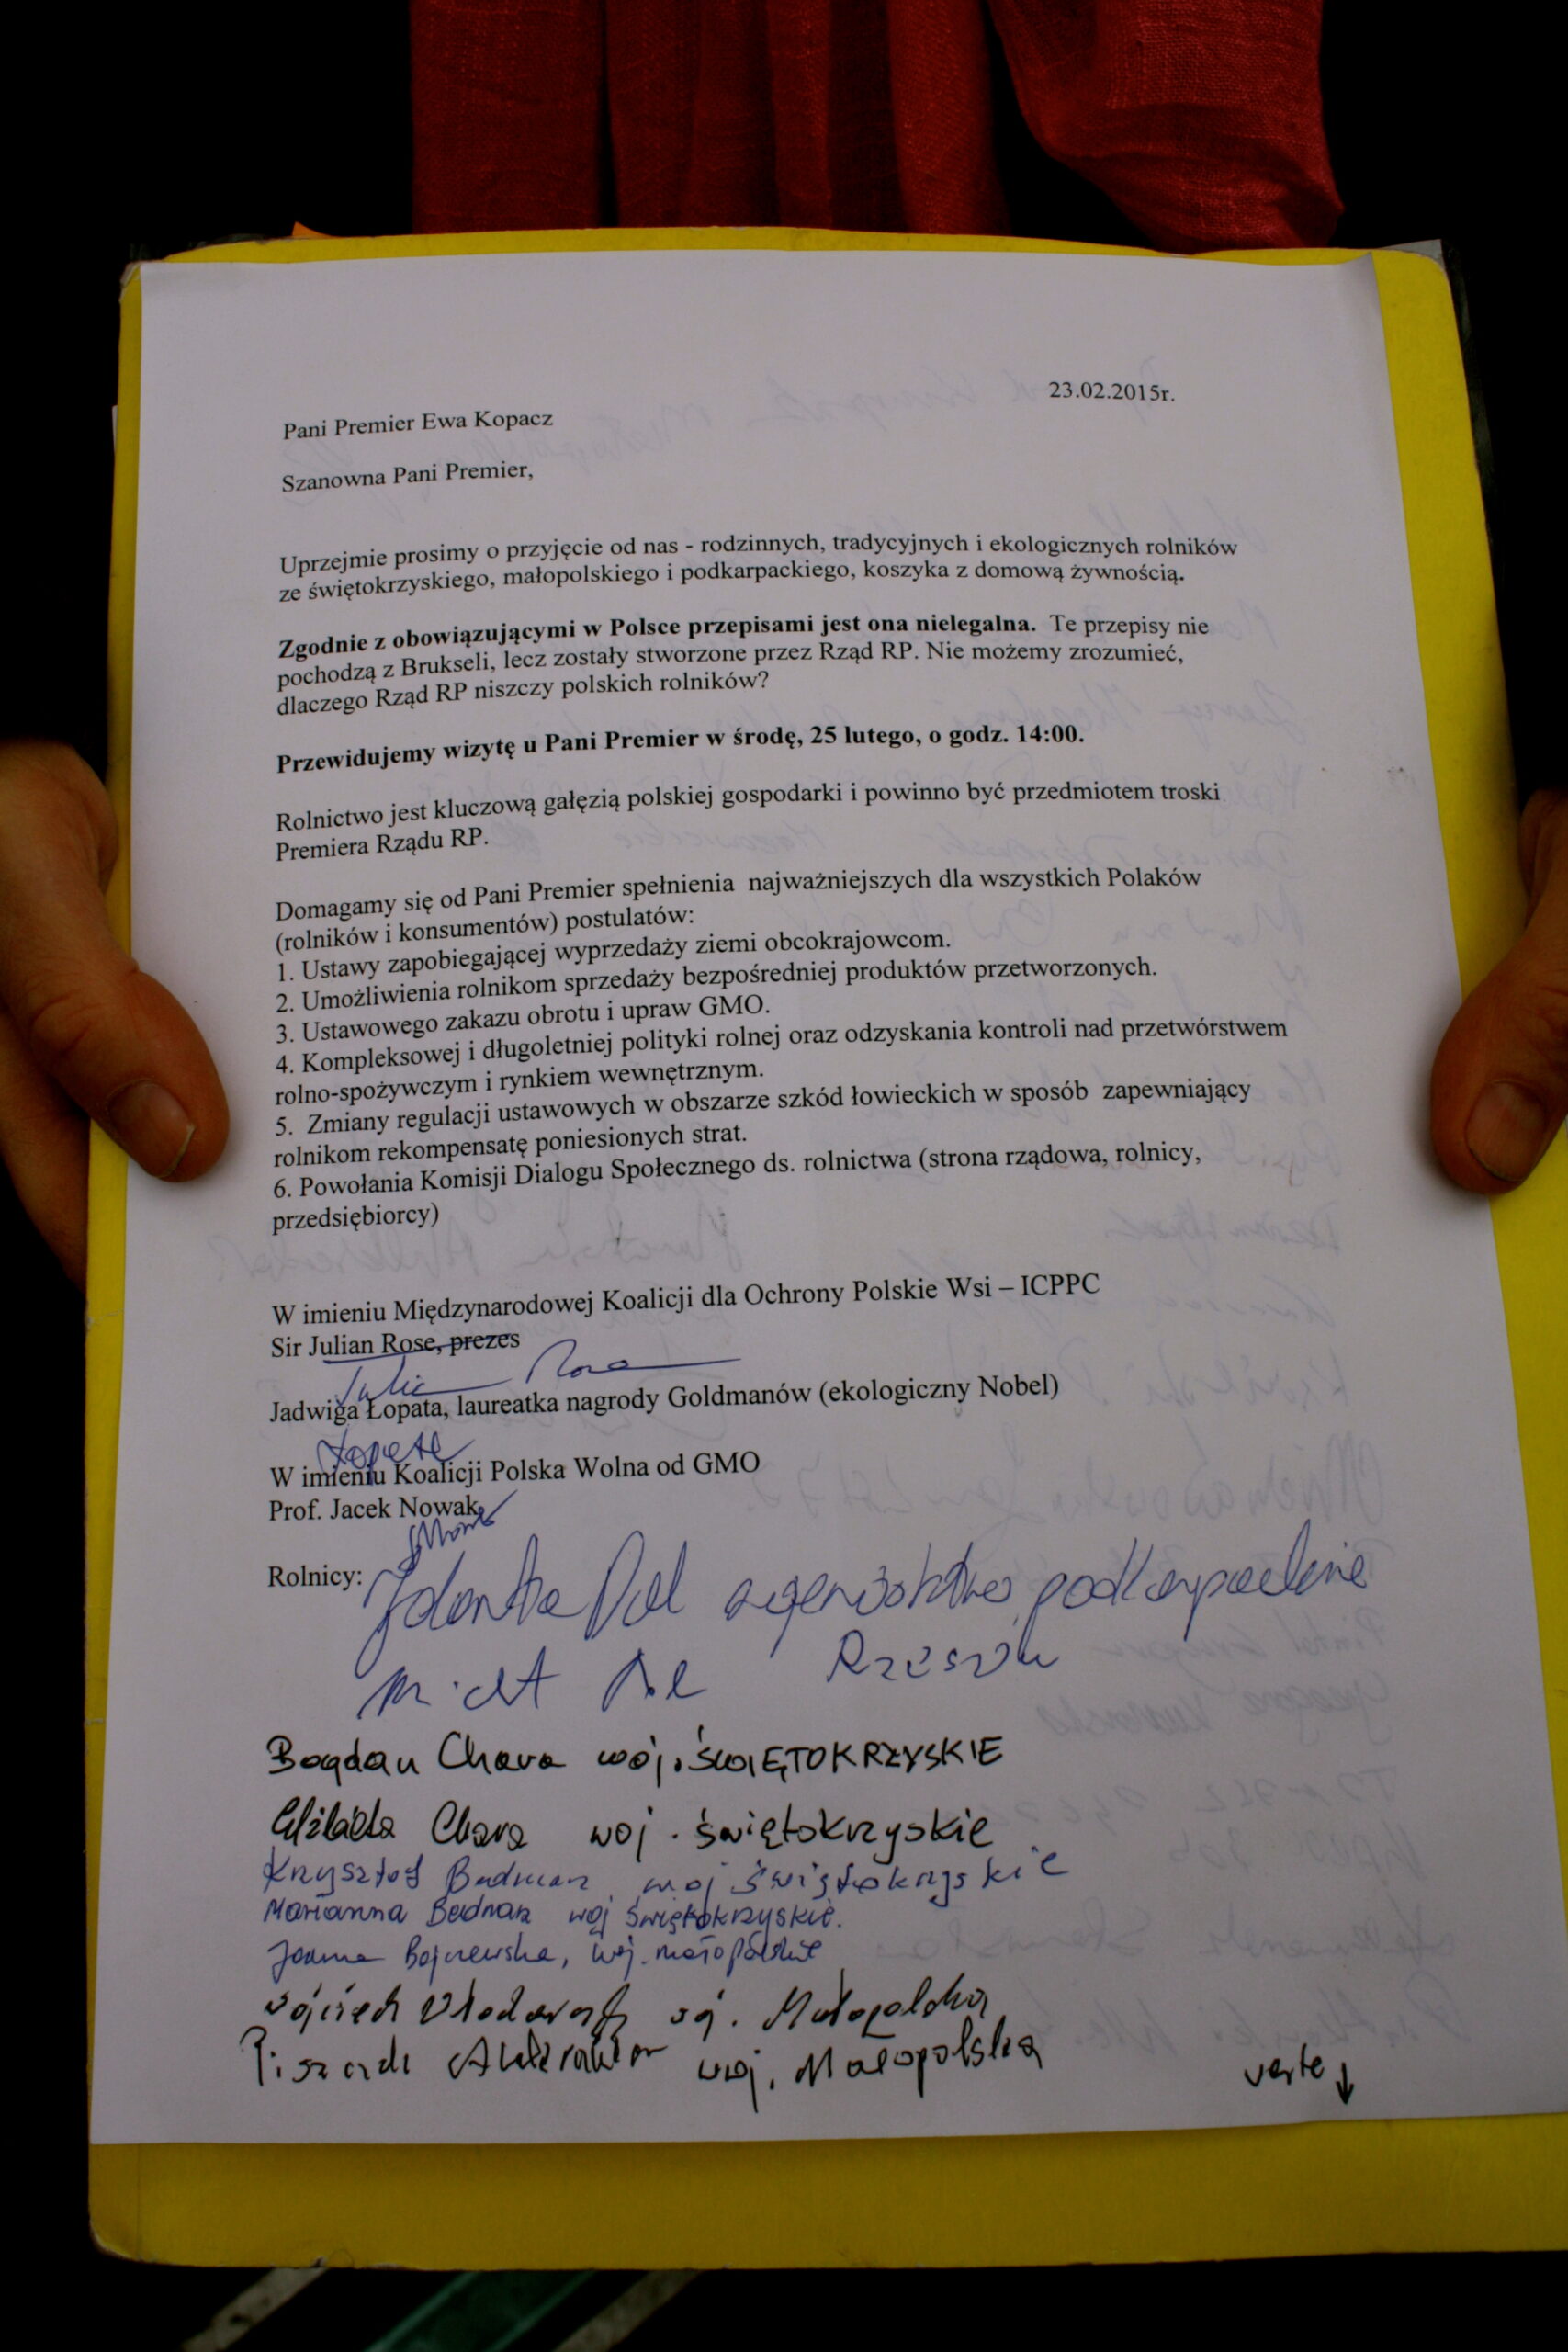 23.02.2015r.
Pani Premier Ewa Kopacz
Szanowna Pani Premier,
Uprzejmie prosimy o przyjęcie od nas - rodzinnych, tradycyjnych i ekologicznych rolników
ze świętokrzyskiego, małopolskiego i podkarpackiego, koszyka z domową żywnością.
Zgodnie z obowiązującymi w Polsce przepisami jest ona nielegalna. Te przepisy nie
pochodzą z Brukseli, lecz zostały stworzone przez Rząd RP. Nie możemy zrozumieć,
dlaczego Rząd RP niszczy polskich rolników?
Przewidujemy wizytę u Pani Premier w środę, 25 lutego, o godz. 14:00.
Rolnictwo jest kluczową gałęzią polskiej gospodarki i powinno być przedmiotem troski
Premiera Rządu RP.
Domagamy się od Pani Premier spełnienia najważniejszych dla wszystkich Polaków
(rolników i konsumentów) postulatów:
1. Ustawy zapobiegającej wyprzedaży ziemi obcokrajowcom.
2. Umożliwienia rolnikom sprzedaży bezpośredniej produktów przetworzonych.
3. Ustawowego zakazu obrotu i upraw GMO.
4. Kompleksowej i długoletniej polityki rolnej oraz odzyskania kontroli nad przetwórstwem
rolno-spożywczym i rynkiem wewnętrznym.
5. Zmiany regulacji ustawowych w obszarze szkód łowieckich w sposób zapewniający
rolnikom rekompensatę poniesionych strat.
6. Powołania Komisji Dialogu Społecznego ds. rolnictwa (strona rządowa, rolnicy,
przedsiębiorcy)
W imieniu Międzynarodowej Koalicji dla Ochrony Polskie Wsi – ICPPC
Sir Julian Rose, prezes
Julian Rose
Jadwiga Łopata, laureatka nagrody Goldmanów (ekologiczny Nobel)
Łopata
W imieniu Koalicji Polska Wolna od GMO
Prof. Jacek Nowak
Rolnicy:
Rzeszów
Bogdan Chava woj. ŚWIĘTOKRZYSKIE
Elżbieta Chava woj. świętokrzyskie
Krzysztof woj świętokrzyskie
Marianna Bednarz woj świętokrzyskie.
Joanna Bojczewska, woj. małopolskie
Małopolska
woj. Małopolska
verte ↓